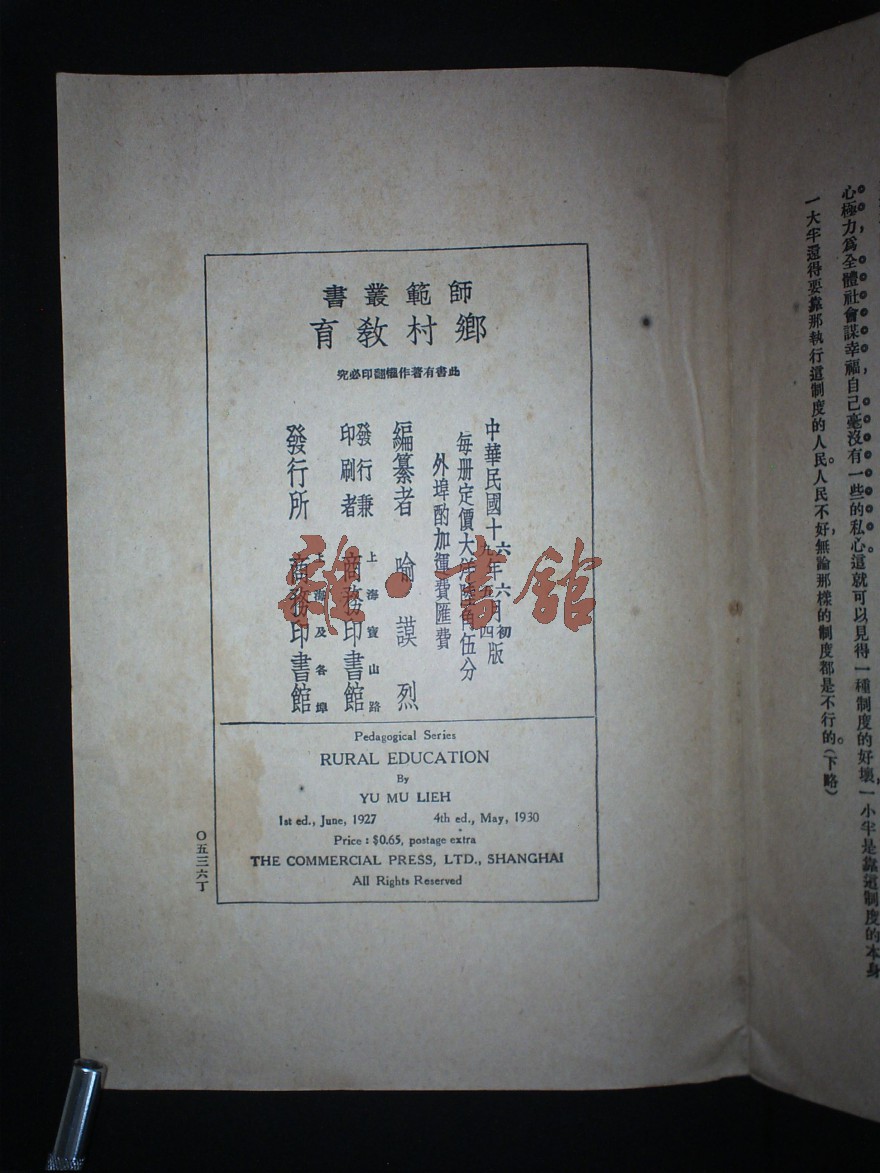 心極力爲全體社會謀幸福，自己毫沒有一些的私心。這就可以見得一種制度的好壞，一小半是靠這制度的本身
一大半還得要靠那執行這制度的人民。人民不好，無論那樣的制度都是不行的。(下略)
師範叢書
鄉村教育
此書有著作權翻印必究
中華民國十六年六月初版
十九年五月四版
每册定價大洋陸角伍分
外埠酌加運費匯費
編纂者 喻謨烈
發行兼印刷者 上海寶山路 商務印書館
發行所 上海及各埠 商務印書館
Pedagogical Series
RURAL EDUCATION
By
YU MU LIEH
1st ed., June, 1927 4th ed., May, 1930
Price : $0.65, postage extra
THE COMMERCIAL PRESS, LTD., SHANGHAI
All Rights Reserved
〇五三六丁
雜·書館